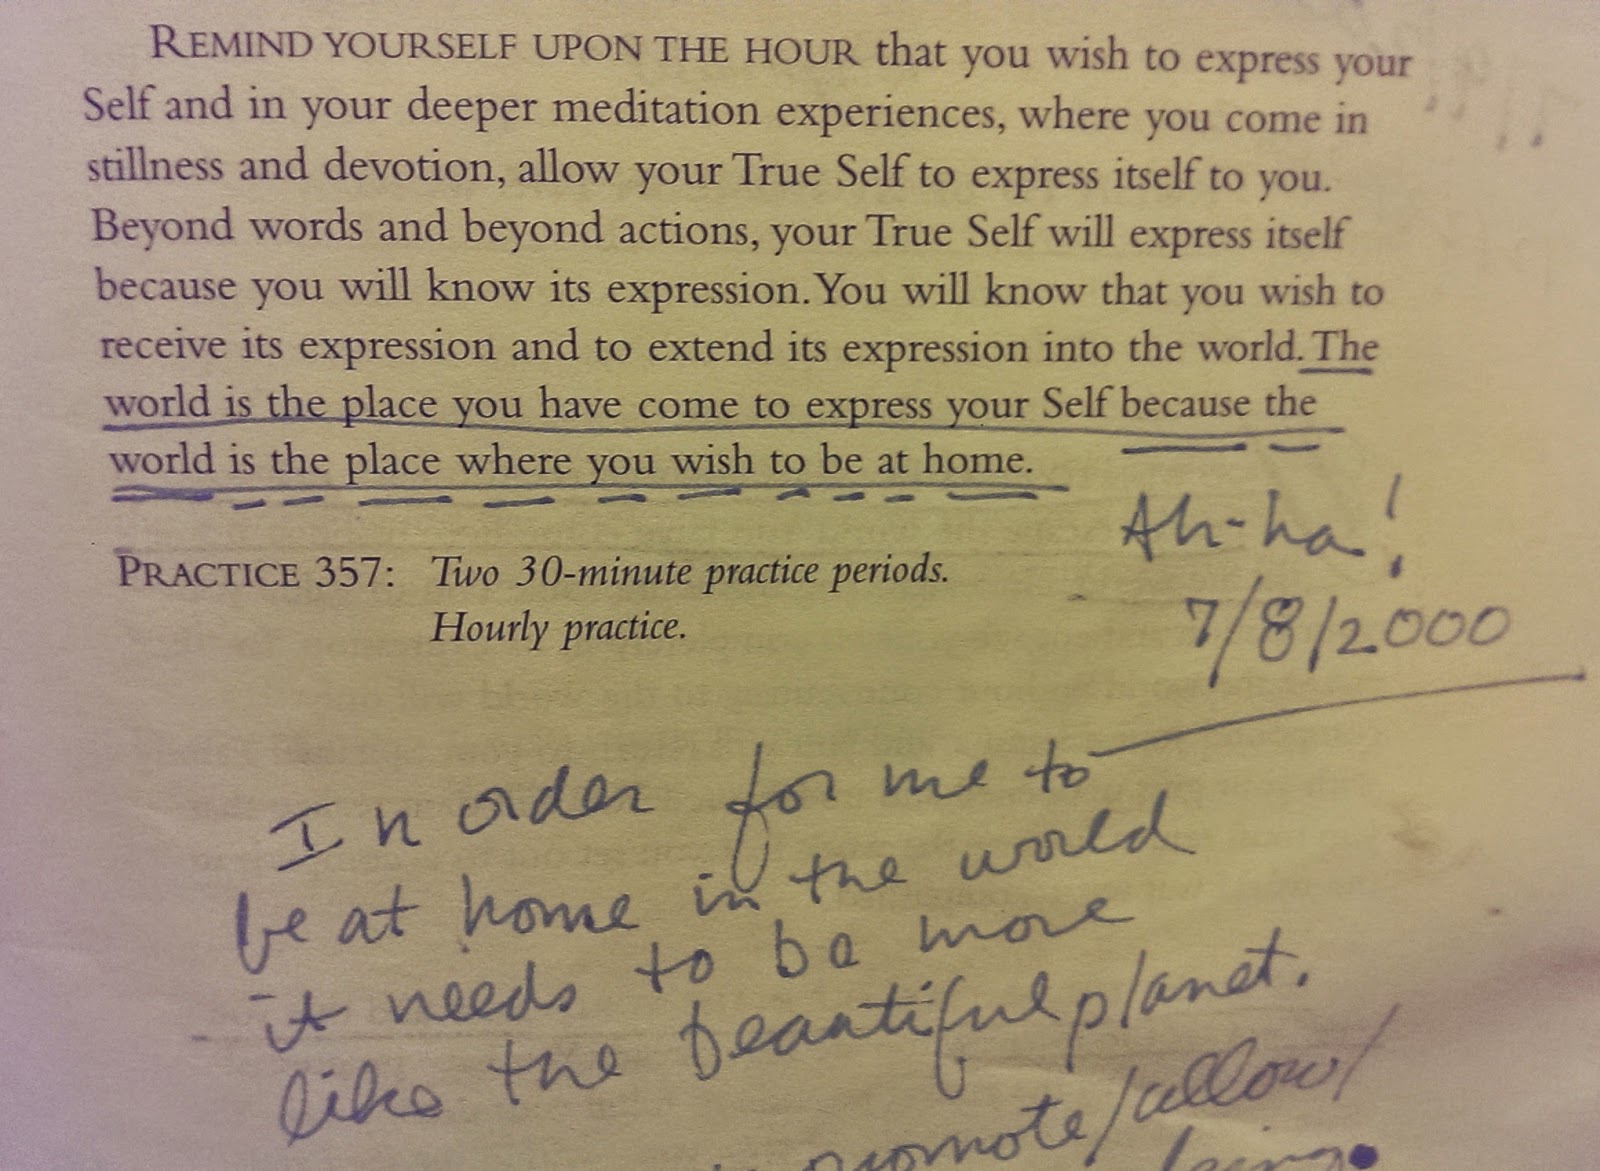 REMIND YOURSELF UPON THE HOUR that you wish to express your
Self and in your deeper meditation experiences, where you come in
stillness and devotion, allow your True Self to express itself to you.
Beyond words and beyond actions, your True Self will express itself
because you will know its expression. You will know that you wish to
receive its expression and to extend its expression into the world. The
world is the place you have come to express your Self because the
world is the place where you wish to be at home.
Ah-ha!
PRACTICE 357: Two 30-minute practice periods.
Hourly practice.
7/8/2000
In order for me to
be at home in the world
it needs to be more
like the beautiful planet.
promote/allow/